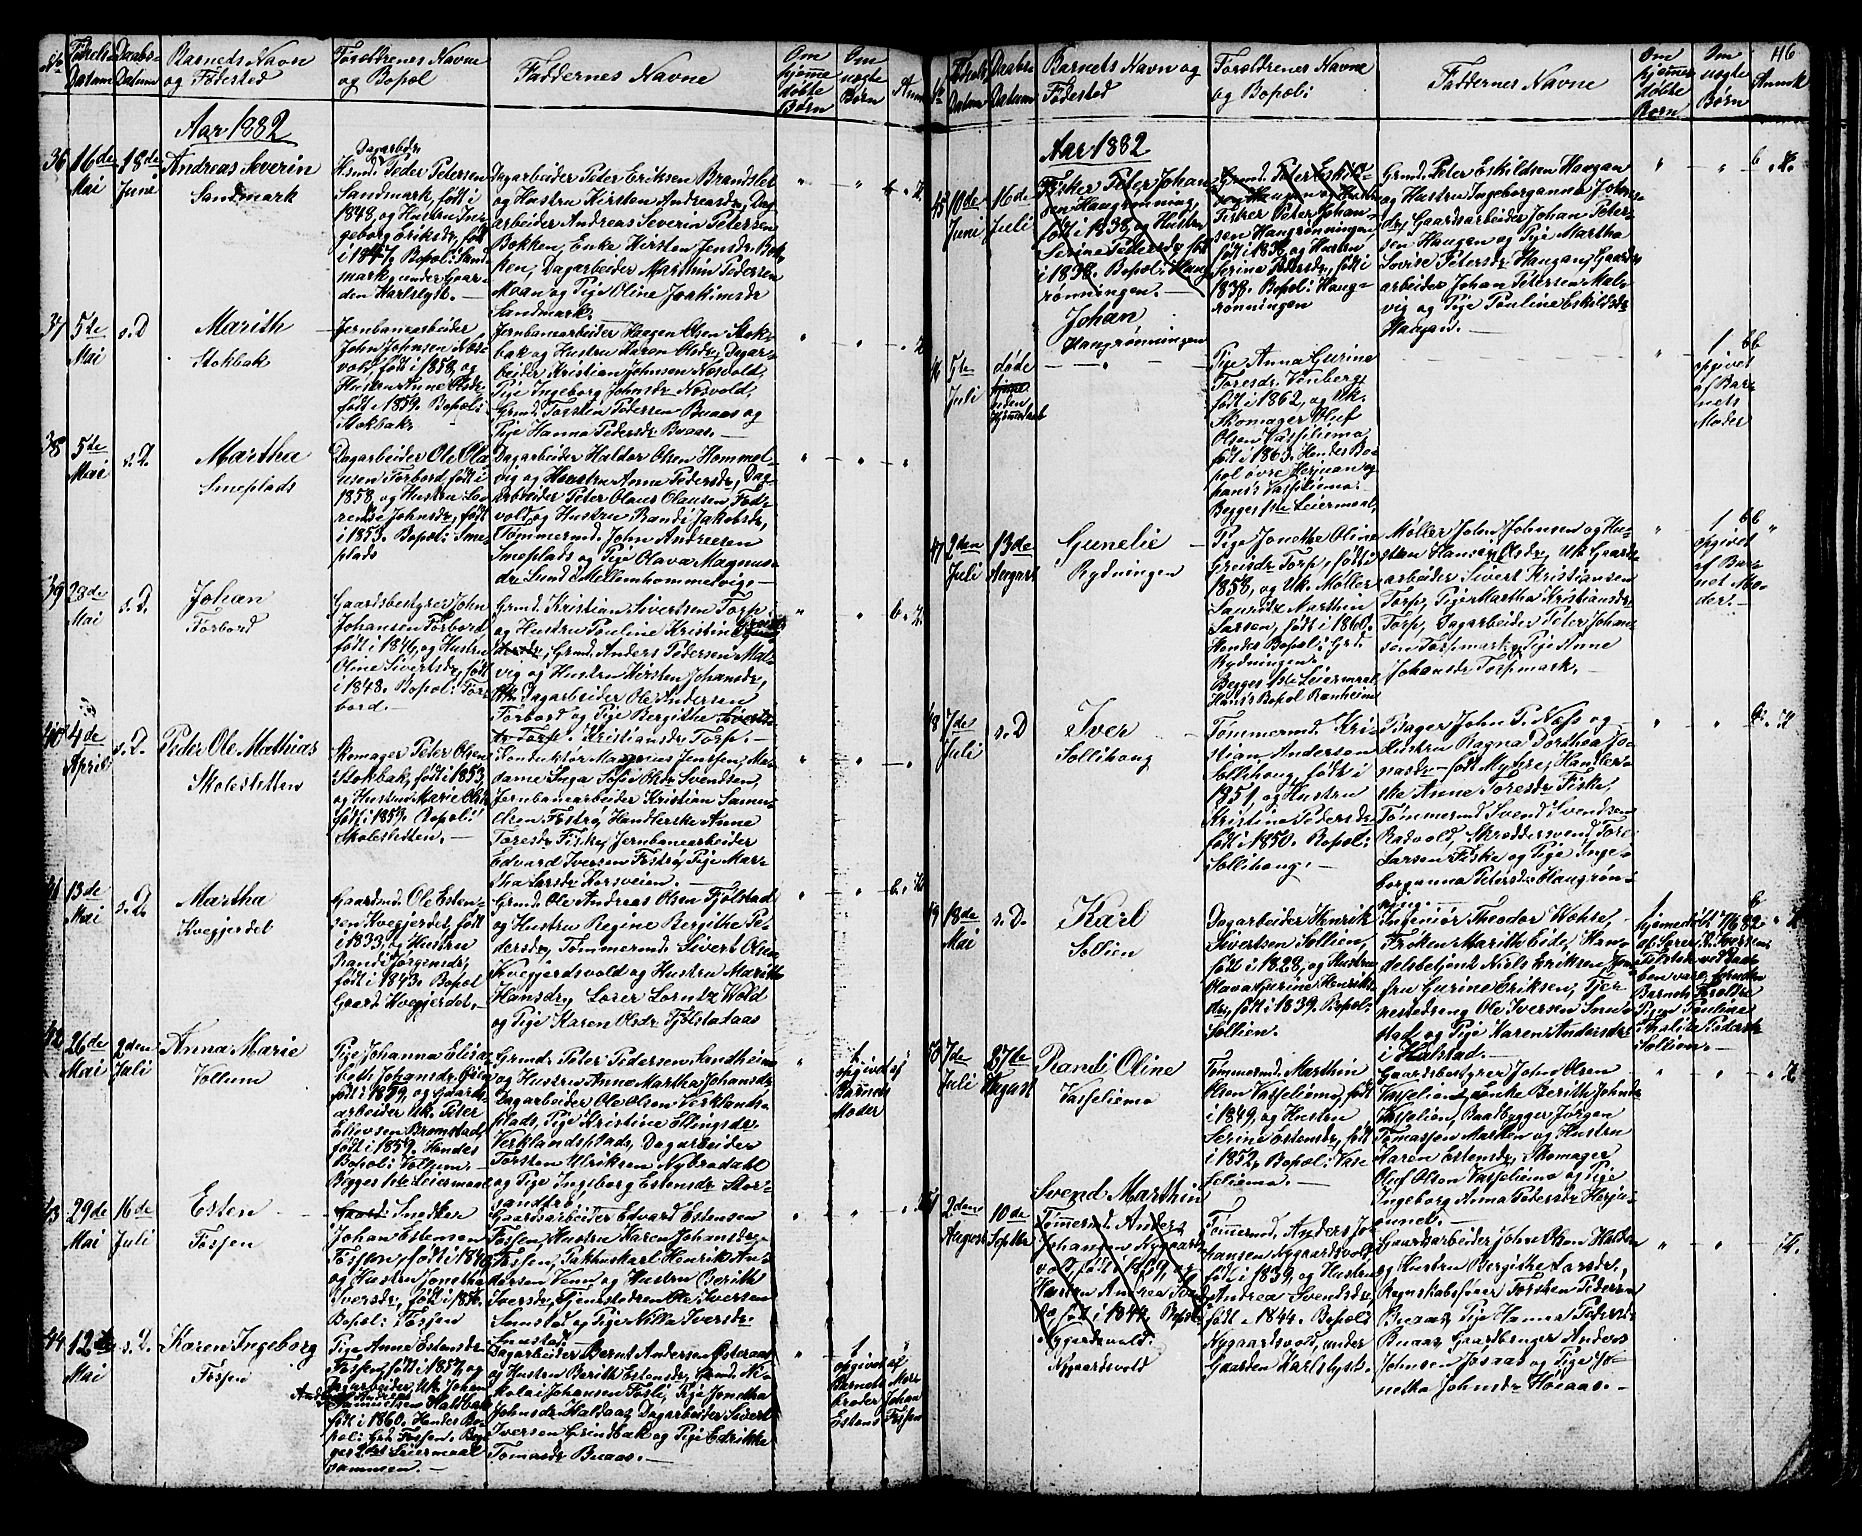 No
Fødsels-
Datum
Daabs-
Datum
Barnets Navn
og Fødested
Forældrenes Navne
og Bopæl
Faddernes Navne
Om
hjemme
døbte
Børn
Om
uægte
Børn
Anm
Aar 1882
36
16de
Mai
18de
Juni
Andreas Severin
Sandmark
Dagarbdr
Husmd. Peder Petersen
Sandmark, født i
1848, og Hustru In-
geborg Eriksdr, født
i 1847. Bopæl: Sand-
mark, under Gaar-
den Karlslyst. —
Dagarbeider Peter Eriksen Brandslet
og Hustru Kirsten Andreasdr, Dag-
arbeider Andreas Severin Petersen
Bokken, Enke Kirsten Jensdr Bok-
ken, Dagarbeider Marthin Pedersen
Moan og Pige Oline Joakimsdr
Sandmark.
37
5te
Mai
s. D
Marith
Stokbak
Jernbanearbeider
John Johnsen Næs-
vold, født i 1858, og
Hustru Anne Olsdr
født i 1859. Bopæl:
Stokbak.
Jernbanearbeider Haagen Olsen Stok-
bak og Hustru Karen Olsdr, Dagar-
beider Kristian Johnsen Næsvold,
Pige Ingeborg Johnsdr Næsvold,
Grmd. Torsten Pedersen Buaas og
Pige Hanna Pedersdr Buaas. —
38
5te
Mai
s. D.
Martha
Smeplads
Dagarbeider Ole Ola-
usen Forbord, født i
1858, og Hustru Lo-
rense Johnsdr, født
i 1853. Bopæl: Sme-
plads
Dagarbeider Haldor Olsen Hommel-
vig og Hustru Anne Pedersdr, Dag-
arbeider Peter Olaus Olausen Fos-
vold, og Hustru Randi Jakobsdr,
Tømmermd. John Andreesen
Smeplads og Pige Olava Magnus-
dr Sund i Mellemhommelvig. —
39
28de
Mai
s. D.
Johan
Forbord
Gaardsbestyrer John
Johansen Forbord
født i 1846, og Hustru
Oline Sivertsdr, født
i 1848. Bopæl: For-
bord.
Grmd. Kristian Sivertsen Torp
og Hustru Pauline Kristine
Grmd. Anders Pedersen Mal-
vig og Hustru Kirsten Johansdr,
Dagarbeider Ole Andersen
Forbord og Pige Bergithe
Kristiansdr Torp. —
40
4de
April
s. D.
Peder Ole Mathias
Skolesletten
Skomager Peter Olsen
Stokbak, født i 1853,
og Hustru Marie Olsdr
født i 1859. Bopæl:
Skolesletten. —
Konduktør Magnus Jenssen, Ma-
dame Inga Sofie Olsdr Svendsen,
Jernbanearbeider Kristian Samu-
elsen Fostrø, Handlerske Anne
Toresdr Fiske, Jernbanearbeider
Edvard Iversen Fostrø, Pige Mar-
tha Larsdr Korsveien. —
41
13de
Mai
s. D.
Martha
Kvegjerdet
Gaardmd. Ole Esten-
sen Kvegjerdet, født
i 1833, og Hustru
Randi Jørgensdr,
født i 1843. Bopæl
Gaard Kvegjerdet. —
Grmd. Ole Andreas Olsen Fjølstad
og Hustru Regine Bergithe Pe-
dersdr, Tømmermd. Sivert Olsen
Kvegjerdsvold og Hustru Marith
Hansdr, Lærer Lorntz Wold
og Pige Karen Olsdr Fjølstadaas
42
26de
Mai
2den
Juli
Anna Marie
Vollum
Pige Johanna Elisa-
beth Johansdr
født i 1859, og Gaards-
arbeider Uk. Peter
Estensen Bromstad,
født i 1859. Hendes
Bopæl: Vollum. —
Begges 1ste Leiermaal
Grmd. Peter Pedersen Sandheim
og Hustru Anne Martha Johansdr
Dagarbeider Ole Olsen Verklands-
plads, Pige Kristine Ellingsdr
Verklandsplads, Dagarbeider
Torsten Ulriksen Nybrodahl
og Pige Ingeborg Estensdr Stor-
sandtrø.
1
opgivet af
Barnets
Moder
43
29de
Mai
16de
Juli
Esten
Fossen
Snedker
Johan Estensen
Fossen, født i 1846
og Hustru Jonetha
Iversdr, født i 1856.
Bopæl: Fossen
Gaardsarbeider Edvard Estensen
Fossen, Hustru Karen Johansdr
Fossen, Pakhuskarl Henrik An-
dersen Venn og Hustru Berith
Iversdr, Tjenestedreng Ole Iversen
Smestad og Pige Nilla Iversdr
Smestad.
44
12te
Mai
s. D.
Karen Ingeborg
Fossen
Pige Anne Estensdr
Fossen, født i 1857, og
Dagarbeider, Uk. Johan
Hatsbak
født i 1860. Hendes Bo-
pæl: Grd. Fossen. Beg-
ges 2det Leiermaal
sammen. —
Dagarbeider Bernt Andersen Østeraas
og Hustru Berith Estensdr, Grmd. Ni-
kolai Johansen Fasli, Pige Jonetha
Johnsdr Haldaas, Dagarbeider Sivert
Iversen Grindbak og Pige Edrikke
Tomasdr Buaas. —
1
opgivet af
Barnets Mor-
broder Johan
Estens Fossen
46
No
Fødsels
Datum
Daabs-
Datum
Barnets Navn og
Fødested
Forældrenes Navne
og Bopæl:
Faddernes Navne
Om
hjemme
døbte
Børn
Om
uægte
Børn
Anmrk
Aar 1882
45
10de
Juni
16de
Juli
Fisker Peter Johan-
sen Haugrønning,
født i 1838, og Hustru
Serine Pedersdr, født
i 1838. Bopæl: Haug-
rønningen. —
Johan
Haugrønningen
Grmd. Peter Eskild-
sen Haugan og Hustru
Fisker Peter Johan-
sen Haugrønningen,
født i 1838, og Hustru
Serine Pedersdr, født i
1838. Bopæl: Haug-
rønningen
Grmd. Peter Eskildsen Haugan
og Hustru Ingeborganna Johns-
dr, Gaardsarbeider Johan Peter-
sen Haugen og Pige Martha
Lovise Petersdr Haugan, Gaards-
arbeider Johan Petersen Mal-
vig og Pige Pauline Eskildsdr
Haugan. —
46
5te
Juli
døde
uden
Hjemmedaab
Pige Anna Gurine
Toresdr Venberg
født i 1862, og Uk.
Skomager Oluf
Olsen Vasseliema
født i 1863. Hendes Bo-
pæl øvre Herjuan og
hans Vasseliema.
Begges 1ste Leiermaal.
1
opgivet
af Bar-
nets
Moder
47
2den
Juli
13de
August
Gunelie
Rydningen
Pige Jonetha Oline
Greisdr Torp, født i
1858, og Uk. Møller
Laurits Marthin
Larsen, født i 1860.
Hendes Bopæl: Grd.
Rydningen.
Begges 1ste Leiermaal
Hans Bopæl Ranheim
Møller John Johnsen og Hu-
stru Hansine Olsdr, Uk. Gaards-
arbeider Sivert Kristiansen
Torp, Pige Martha Kristiansdr
Torp, Dagarbeider Peter Johan-
sen Torpmark, Pige Anne
Johansdr Torpmark. —
1
opgivet
af Bar-
net Mo-
der. —
48
7de
Juli
s. D
Iver
Sollihaug
Tømmermd. Kris-
tian Andersen
Sollihaug, født i
1851, og Hustru
Kristine Pedersdr
født i 1850. Bopæl:
Sollihaug. —
Bager John P. Næss og
Hustru Ragna Dorthea Jo-
nasdr — født Myhre, Handler-
ske Anne Toresdr Fiske,
Tømmermd. Svend Svendsen
Rødvold, Skreddersvend Tore
Larsen Fiske og Pige Inge-
borganna Petersdr Haugrøn-
ning. —
49
18de
Mai
s. D.
Karl
Sollien
Dagarbeider Henrik
Sivertsen Sollien,
født i 1828, og Hustru
Olava Gurine Henriks-
dr, født i 1839. Bopæl:
Sollien.
Ingeniør Theodor Wohse,
Frøken Marith Eide, Han-
delsbetjent Niels Eriksen,
fru Gurine Eriksen, Tjen-
restedreng Ole Iversen Sme-
stad og Pige Karen Andersdr
i Halstad. —
Barnets Forældre
Pigen Pauline
Pedersdr
Sollien. —
50
7de
Juli
27de
August
Randi Oline
Vasseliema
Tømmermd. Marthin
Olsen Vasseliema, født
i 1849, og Hustru
Serine Estensdr, født
i 1852. Bopæl: Vas-
seliema. —
Gaardsbestyrer John Olsen
Vasselien, Enke Berith Johnsdr
Vasselien, Baadbygger Jørgen
Tomassen Marken og Hustru
Karen Estensdr, Skomager
Oluf Olsen Vasseliema og Pige
Ingeborg Anna Pedersdr Herju-
aunet. —
51
2den
August
10de
Septbr
Svend Marthin
Tømmermd. Anders
Johansen Nygaards-
vold, født i 1839, og
Hustru Andrea Svends-
dr, født i 1844. Bopæl
Nygaardsvold.
Nygaardsvold
Tømmermd. Anders Jo-
hansen Nygaardsvold,
født i 1839, og Hustru
Andrea Svendsdr,
født i 1844. Bopæl:
Nygaardsvold, under
Gaarden Karlslyst.
Gaardsarbeider John Olsen Halden
og Hustru Bergithe Larsdr,
Regnskabsfører Torsten Pedersen
Buaas, Pige Hanna Pedersdr
Buaas, Gaardbruger Anders
Johnsen Jøsaas og Pige Jo-
netha Johnsdr Høiaas. —